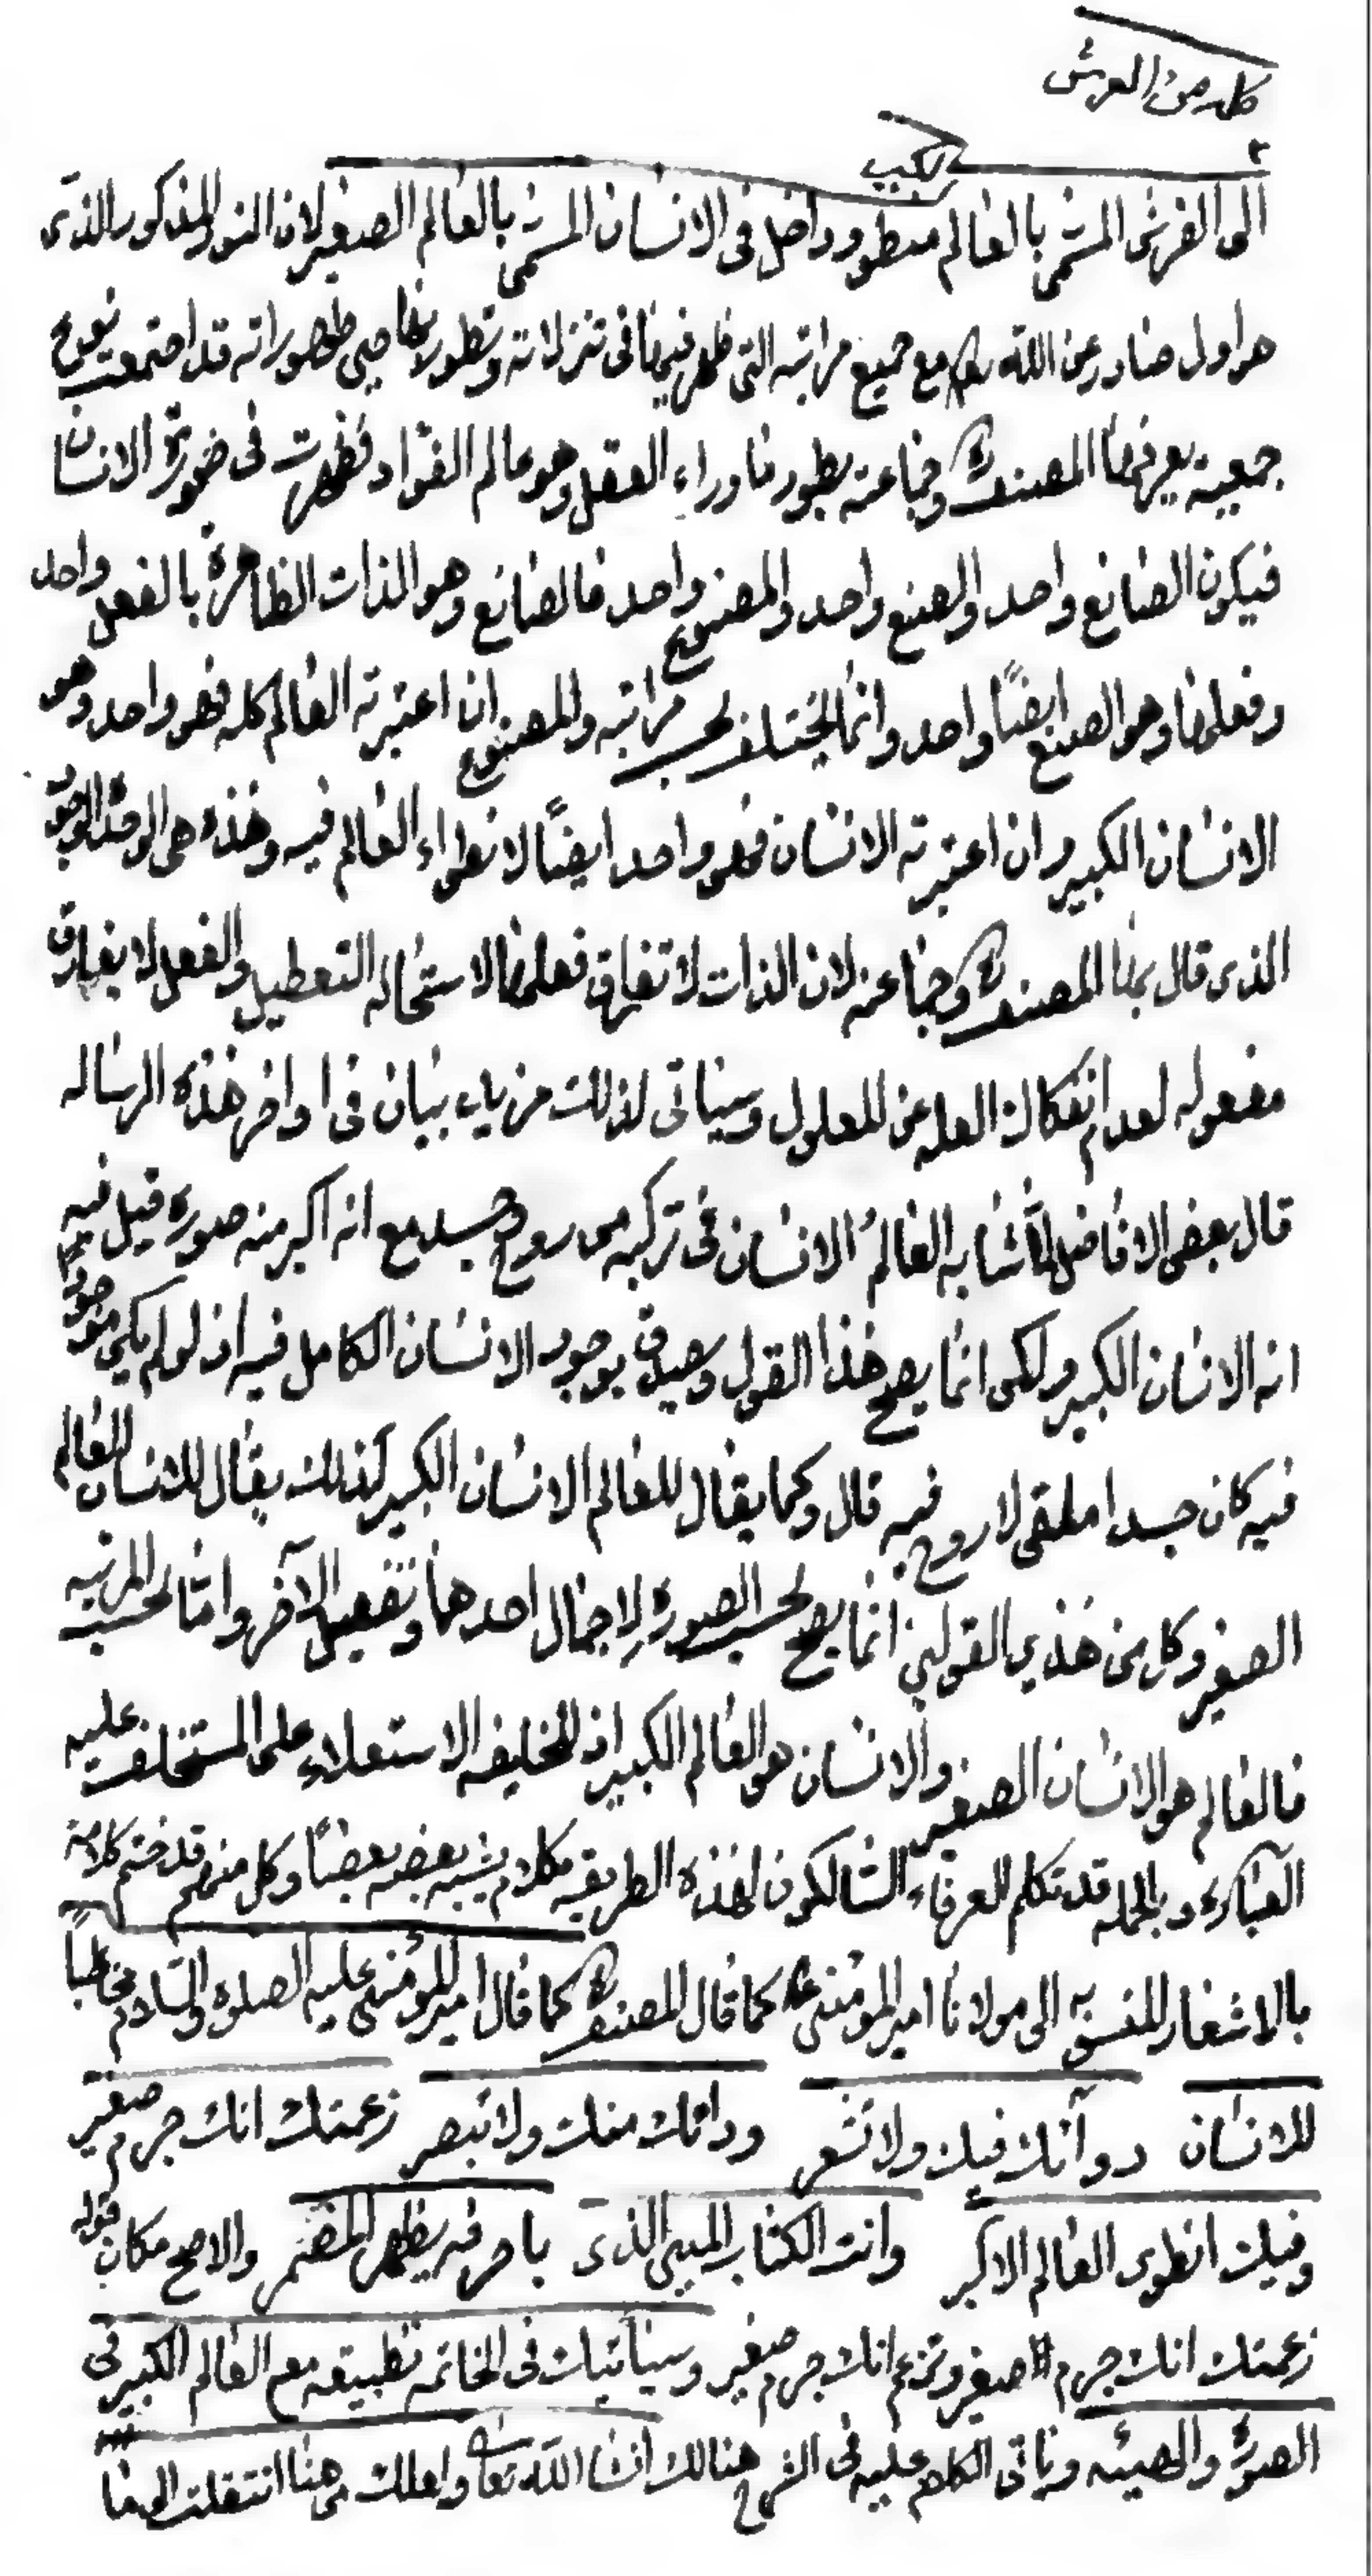 كل من العرش
٢
الكبير
الى الفرش المسمى بالعالم منطو وداخل فى الانسان المسمى بالعالم الصغير لان النور المذكور الذى
هو اول صادر عن الله مع جميع مراتبه التى ظهر فيها فى تنزلاته وتطوراتها حين ظهوراته قد اجتمعت بنوع
جمعية يعرفها المصنف وجماعته بطور ما وراء العقل وهو عالم الفؤاد فظهرت فى صورة الانسان
فيكون الصانع واحد والصنع واحد والمصنوع واحد فالصانع وهو الذات الظاهرة بالفعل واحد
وفعلها وهو الصنع ايضًا واحد وانما يختلف بحسب مراتبه والمصنوع ان اعتبرته العالم كله فهو واحد وهو
الانسان الكبير وان اعتبرته الانسان فهو واحد ايضًا لانطواء العالم فيه وهذه هى الوحدة الوجود
الذى قال بها المصنف وجماعته لان الذات لا تفارق فعلها لاستحالة التعطيل والفعل لا يفارق
مفعوله لعدم انفكاك العله عن المعلول وسياتى لذلك مزيد بيان فى اواخر هذه الرساله
قال بعض الافاضل لما شابه العالمُ الانسان فى تركبه من روح وجسد مع انه اكبر منه صورة قيل فيه
انه الانسان الكبير ولكن انما يصح هذا القول ويصدق بوجود الانسان الكامل فيه اذ لو لم يكن موجودًا
فيه كان جسدا ملقى لا روح فيه قال وكما يقال للعالم الانسان الكبير كذلك يقال للانسان العالم
الصغير وكل من هذين القولين انما يصح بحسب الصورة لاجمال احدهما وتفصيل الآخر واما بحسب المرتبه
فالعالم هو الانسان الصغير والانسان هو العالم الكبير اذ للخليفه الاستعلاء على المستخلف عليه
وبالجمله قد تكلم العرفاء السالكون لهذه الطريقه مكلام يشبه بعضه بعضًا وكل منهم قد ختم كلامه
بالاشعار المنسوبه الى مولانا امير المؤمنين ع كما قال المصنف كما قال امير المؤمنين عليه الصلوة والسلام مخاطبًا
للانسان دوآئك فيك ولا تشعر ودائك منك ولا تبصر زعمتك انك جرم صغير
وفيك انطوى العالم الاكبر وانت الكتاب المبين الذى باحرفه يظهر المضمر والاصح مكان قوله
زعمتك انك جرم صغير وتزعم انك جرم صغير وسيأتيك فى الخاتمه تطبيقه مع العالم الكبير فى
الصورة والهيئه وياتى الكلام عليه فى الشرح هنالك انشا الله تعا ولعلك من هنا انتقلت الى ما